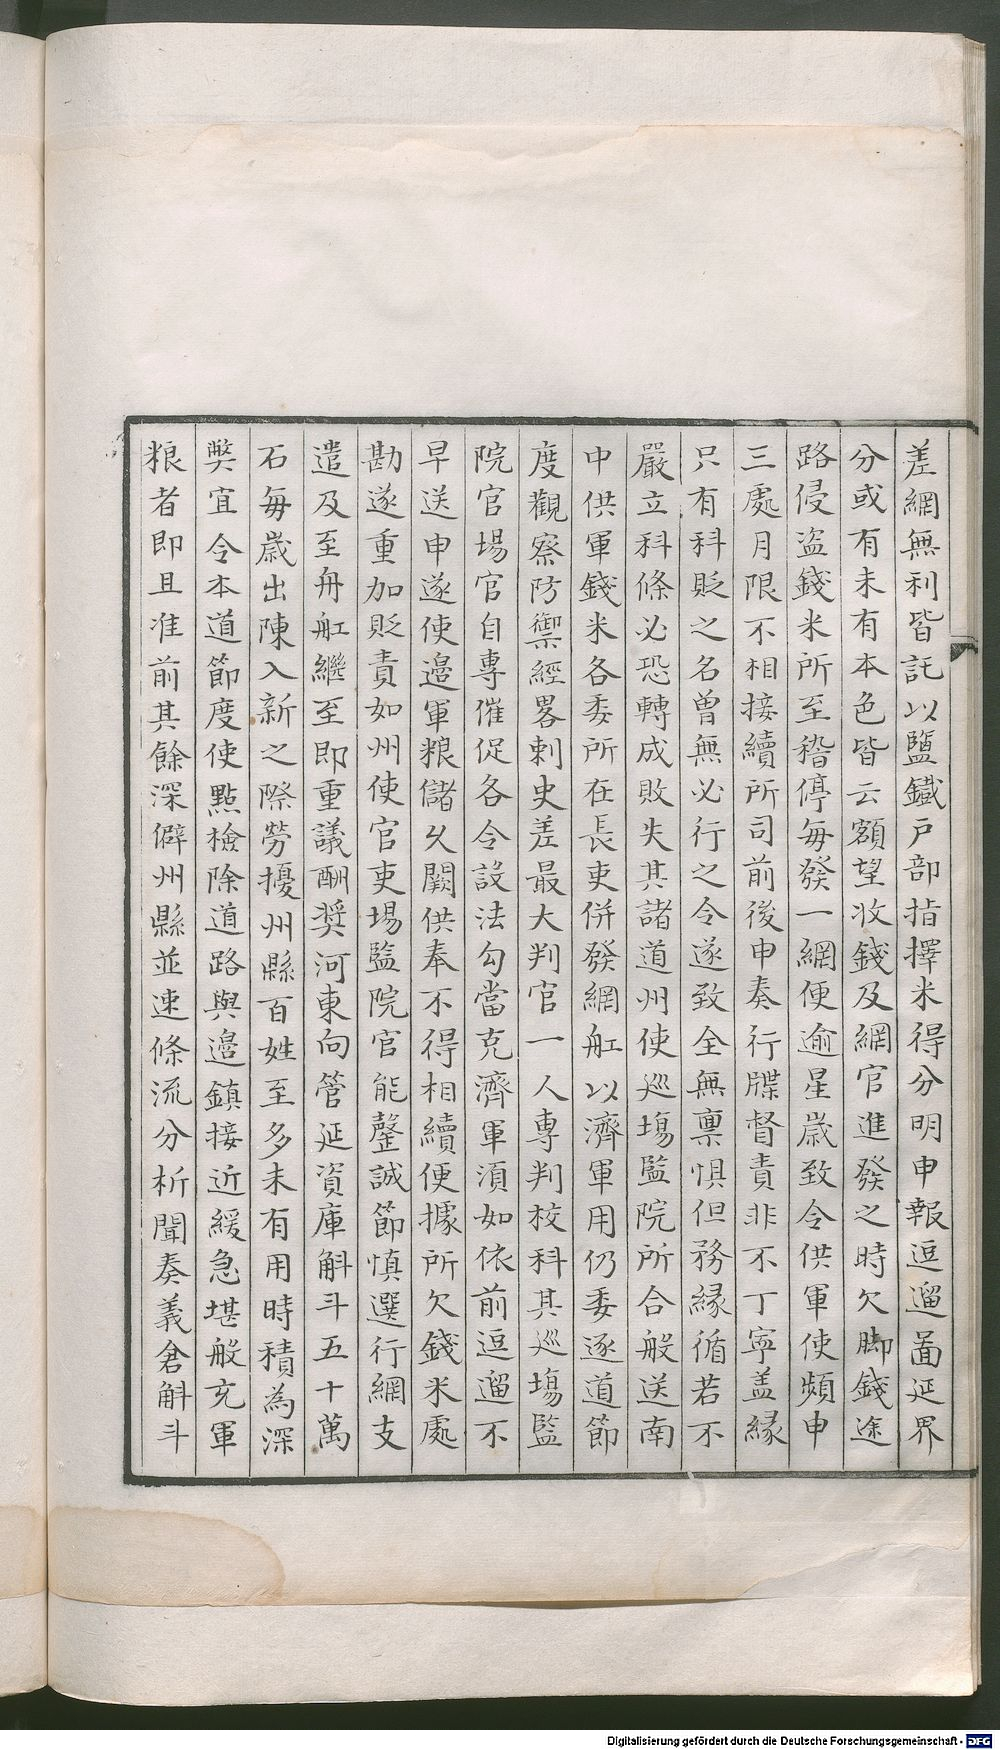 差網無利皆託以鹽鐵戸部指擇米得分明申報逗遛啚延界
分或有未有本色皆云額望收錢及網官進發之時欠脚錢途
路侵盗錢米所至稽停每發一網便逾星歲致令供軍使頻申
三處月限不相接續所司前後申奏行牒督責非不丁寧盖緣
只有科貶之名曾無必行之令遂致全無禀惧但務緣循若不
嚴立科條必恐轉成敗失其諸道州使巡塲監院所合般送南
中供軍錢米各委所在長吏併發網舡以濟軍用仍委逐道節
度觀察防禦經畧剌史差最大判官一人專判校科其巡塲監
院官場官自專催促各令設法勾當克濟軍須如依前逗遛不
早送申遂使邉軍粮儲乆闕供奉不得相續便據所欠錢米處
勘遂重加貶責如州使官吏場監院官能罄誠節慎選行網支
遣及至舟舡繼至即重議酬奬河東向管延資庫斛斗五十萬
石每歲出陳入新之際勞擾州縣百姓至多未有用時積為深
弊宜令本道節度使㸃檢除道路與邉鎮接近緩急堪般充軍
粮者即且准前其餘深僻州縣並速條流分析聞奏義倉斛斗
Digitalisierung gefördert durch die Deutsche Forschungsgemeinschaft - DFG